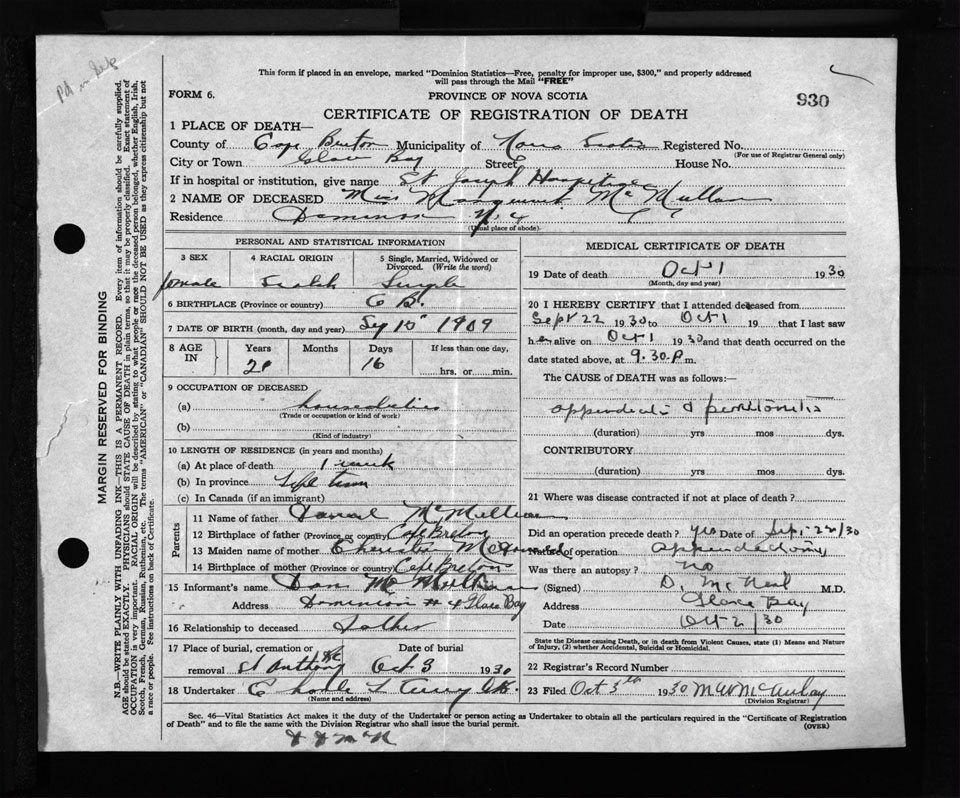 This form if placed in an envelope, marked "Dominion Statistics—Free, penalty for improper use, $300," and properly addressed
will pass through the Mail "FREE"
FORM 6.
PROVINCE OF NOVA SCOTIA
930
CERTIFICATE OF REGISTRATION OF DEATH
1 PLACE OF DEATH—
County of Cape Breton Municipality of Nova Scotia Registered No.
(For use of Registrar General only)
City or Town Glace Bay Street House No.
If in hospital or institution, give name St Joseph Hospital
2 NAME OF DECEASED Miss Margaret McMullan
Residence Dominion No 4
(Usual place of abode)
PERSONAL AND STATISTICAL INFORMATION
3 SEX 4 RACIAL ORIGIN 5 Single, Married, Widowed or Divorced. (Write the word)
female Scotch Single
6 BIRTHPLACE (Province or country) C B.
7 DATE OF BIRTH (month, day and year) 15 1909
8 AGE IN Years Months Days If less than one day,
21 16 hrs. or min.
9 OCCUPATION OF DECEASED
(a)
(Trade or occupation or kind of work)
(b)
(Kind of industry)
10 LENGTH OF RESIDENCE (in years and months)
(a) At place of death 1 week
(b) In province Life time
(c) In Canada (if an immigrant)
Parents
11 Name of father McMillan
12 Birthplace of father (Province or country) Cape Breton
13 Maiden name of mother
14 Birthplace of mother (Province or country) Cape Breton
15 Informant's name Dan McMillan
Address Dominion # 4 Glace Bay
16 Relationship to deceased Father
17 Place of burial, cremation or removal St Anthony Date of burial Oct 3 1930
18 Undertaker
(Name and address)
MEDICAL CERTIFICATE OF DEATH
19 Date of death Oct 1 1930
(Month, day and year)
20 I HEREBY CERTIFY that I attended deceased from
Sept 22 1930 to Oct 1 19 that I last saw
her alive on Oct 1 1930 and that death occurred on the
date stated above, at 9.30 P m.
The CAUSE of DEATH was as follows:—
appendicitis & peritonitis
(duration) yrs mos dys.
CONTRIBUTORY
(duration) yrs mos dys.
21 Where was disease contracted if not at place of death?
Did an operation precede death? yes Date of Sept 22/30
Nature of operation appendectomy
Was there an autopsy? no
(Signed) D. McNeil M.D.
Address Glace Bay
Date Oct 2/30
State the Disease causing Death, or in death from Violent Causes, state (1) Means and Nature
of Injury, (2) whether Accidental, Suicidal or Homicidal.
22 Registrar's Record Number
23 Filed Oct 3th 1930 McAulay
(Division Registrar)
Sec. 46—Vital Statistics Act makes it the duty of the Undertaker or person acting as Undertaker to obtain all the particulars required in the "Certificate of Registration
of Death" and to file the same with the Division Registrar who shall issue the burial permit.
(OVER)
MARGIN RESERVED FOR BINDING
N.B.—WRITE PLAINLY WITH UNFADING INK—THIS IS A PERMANENT RECORD. Every item of information should be carefully supplied.
AGE should be stated EXACTLY. PHYSICIANS should STATE CAUSE OF DEATH in plain terms, so that it may be properly classified. Exact statement of
OCCUPATION is very important. RACIAL ORIGIN will be described by stating to what people or race the deceased person belonged, whether English, Irish,
Scotch, French, German, Russian, Ruthenian, etc. The terms "AMERICAN" or "CANADIAN" SHOULD NOT BE USED as they express citizenship but not
a race or people. See instructions on back of Certificate.